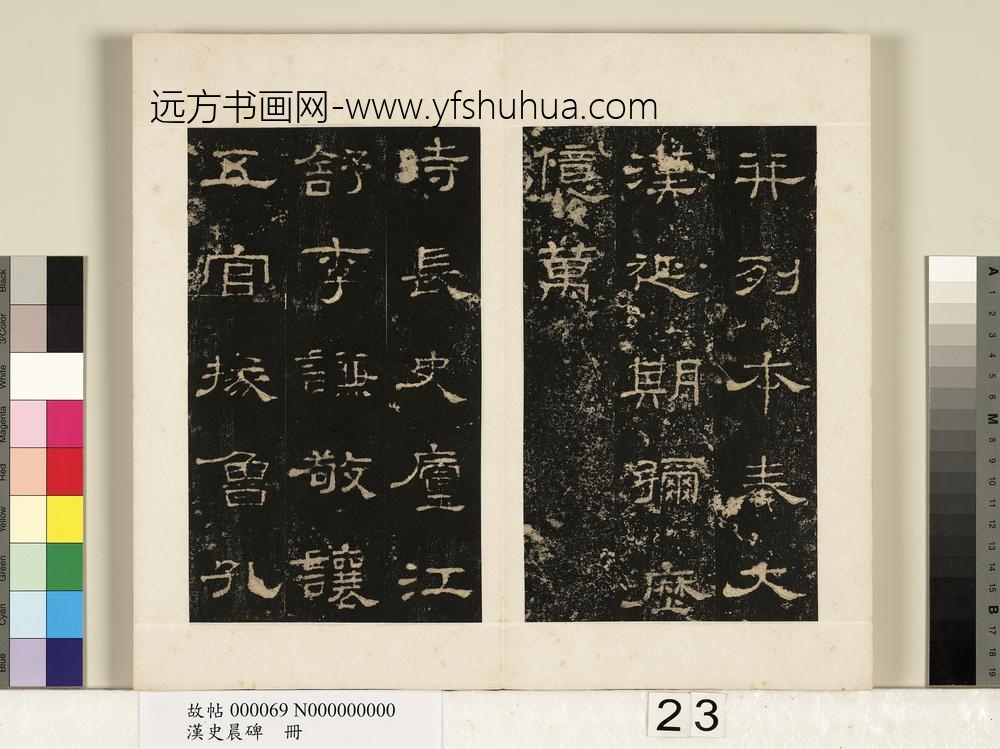 远方书画网-www.yfshuhua.com
并列本奏大
漢延期彌歷
億萬
時長史廬江
舒李謙敬讓
五官掾魯孔
故帖 000069 N000000000
漢史晨碑 冊
23
Black
3/Color
White
Magenta
Red
Yellow
Green
Cyan
Blue
A
1
2
3
4
5
6
M
8
9
10
11
12
13
14
15
B
17
18
19